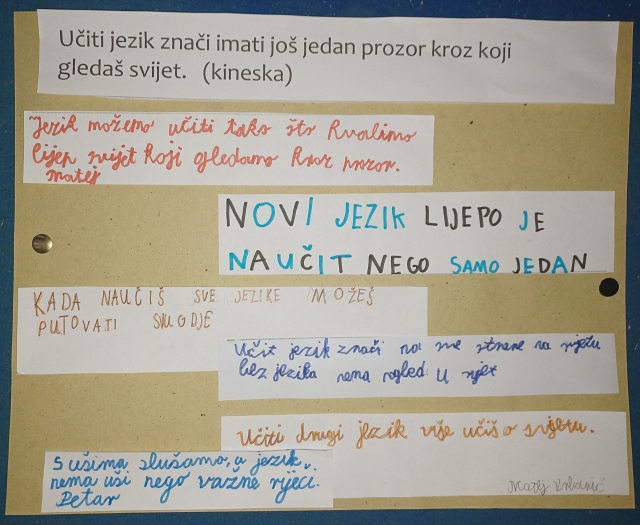 Učiti jezik znači imati još jedan prozor kroz koji
gledaš svijet. (kineska)
Jezik možemo učiti tako što hvalimo
lijep svijet koji gledamo kroz prozor.
Matej
NOVI JEZIK LIJEPO JE
NAUČIT NEGO SAMO JEDAN
KADA NAUČIŠ SVE JEZIKE MOŽEŠ
PUTOVATI SVUGDJE
Učit jezik znači na sve strane na svijetu
bez jezika nema pogled U svjet
Učiti drugi jezik više učiš o svijetu.
S ušima slušamo, a jezik
nema uši nego važne riječi.
Petar
Matej